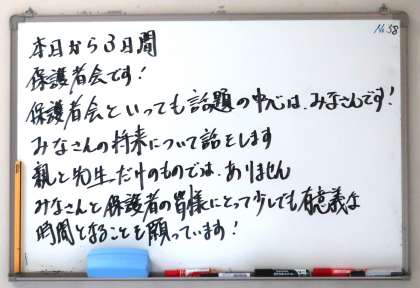 No.38
本日から3日間
保護者会です!
保護者会といっても話題の中心は、みなさんです!
みなさんの将来について話をします
親と先生だけのものでは、ありません
みなさんと保護者の皆様にとって少しでも有意義な
時間となることを願っています!